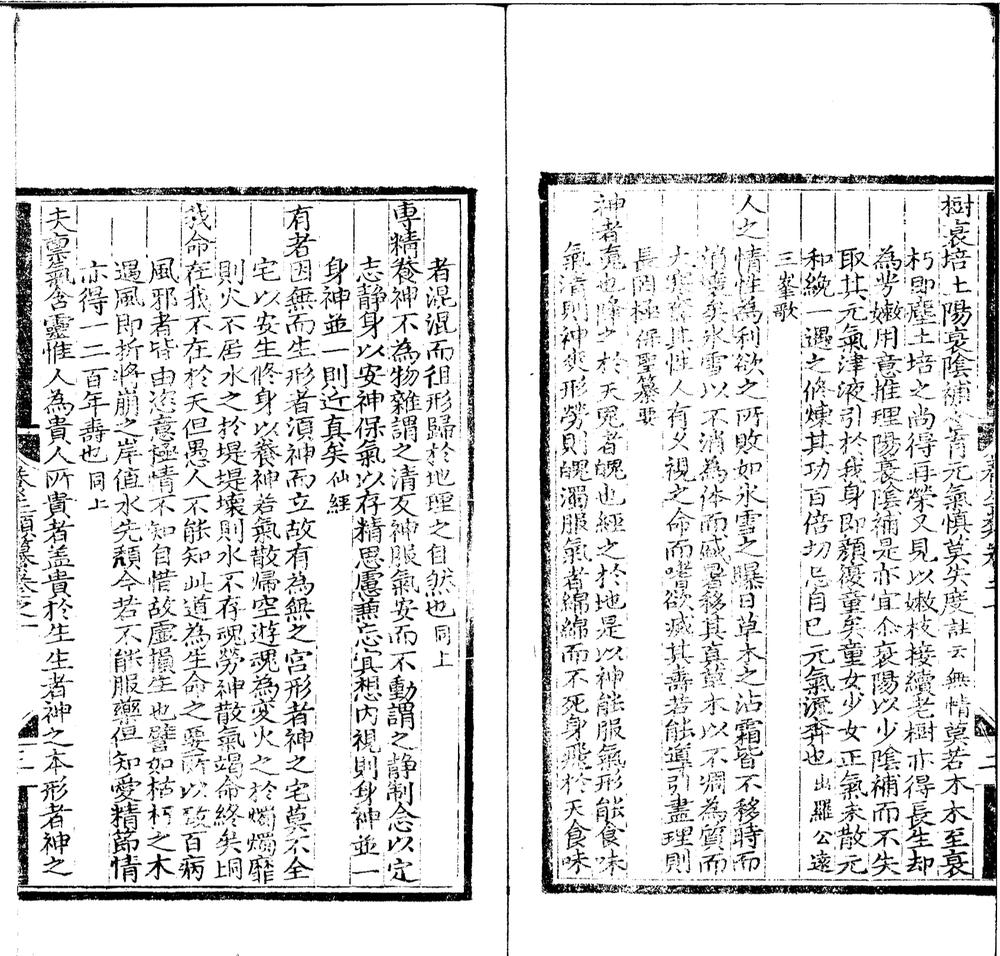 樹衰培土陽衰陰補含育元氣慎莫失度註云無情莫若木木至衰
朽即塵土培之尚得再榮又見以嫩枝接續老樹亦得長生却
為芳嫩用意推理陽衰陰補是亦宜尒衰陽以少陰補而不失
取其元氣津液引於我身即顏復童矣童女少女正氣未散元
和純一遇之修煉其功百倍切忌自己元氣流奔也出羅公遠
三峯歌
人之情性為利欲之所敗如氷雪之曝日草木之沾霜皆不移時而
消壞矣氷雪以不消為体而盛暑移其真草木以不凋為質而
大寒奪其性人有久視之命而嗜欲滅其壽若能導引盡理則
長罔極保聖纂要
神者䰟也降之於天冤者魄也經之於地是以神能服氣形能食味
氣清則神爽形勞則魄濁服氣者綿綿而不死身飛於天食味
者混混而徂形歸於地理之自然也同上
專精養神不為物雜謂之清反神服氣安而不動謂之静制念以定
志静身以安神保氣以存精思慮兼忘冥想内視則身神並一
身神並一則近真矣仙經
有者因無而生形者須神而立故有為無之宮形者神之宅莫不全
宅以安生修身以養神若氣散歸空遊魂為変火之於燭燭靡
則火不居水之於堤堤壞則水不存魂勞神散氣竭命終矣同上
我命在我不在於天但愚人不能知此道為生命之要所以致百病
風邪者皆由恣意極情不知自惜故虛損生也譬如枯朽之木
遇風即折將崩之岸值水先頹今若不能服藥但知愛精節情
亦得一二百年壽也同上
夫禀氣含靈惟人為貴人所貴者盖貴於生生者神之本形者神之